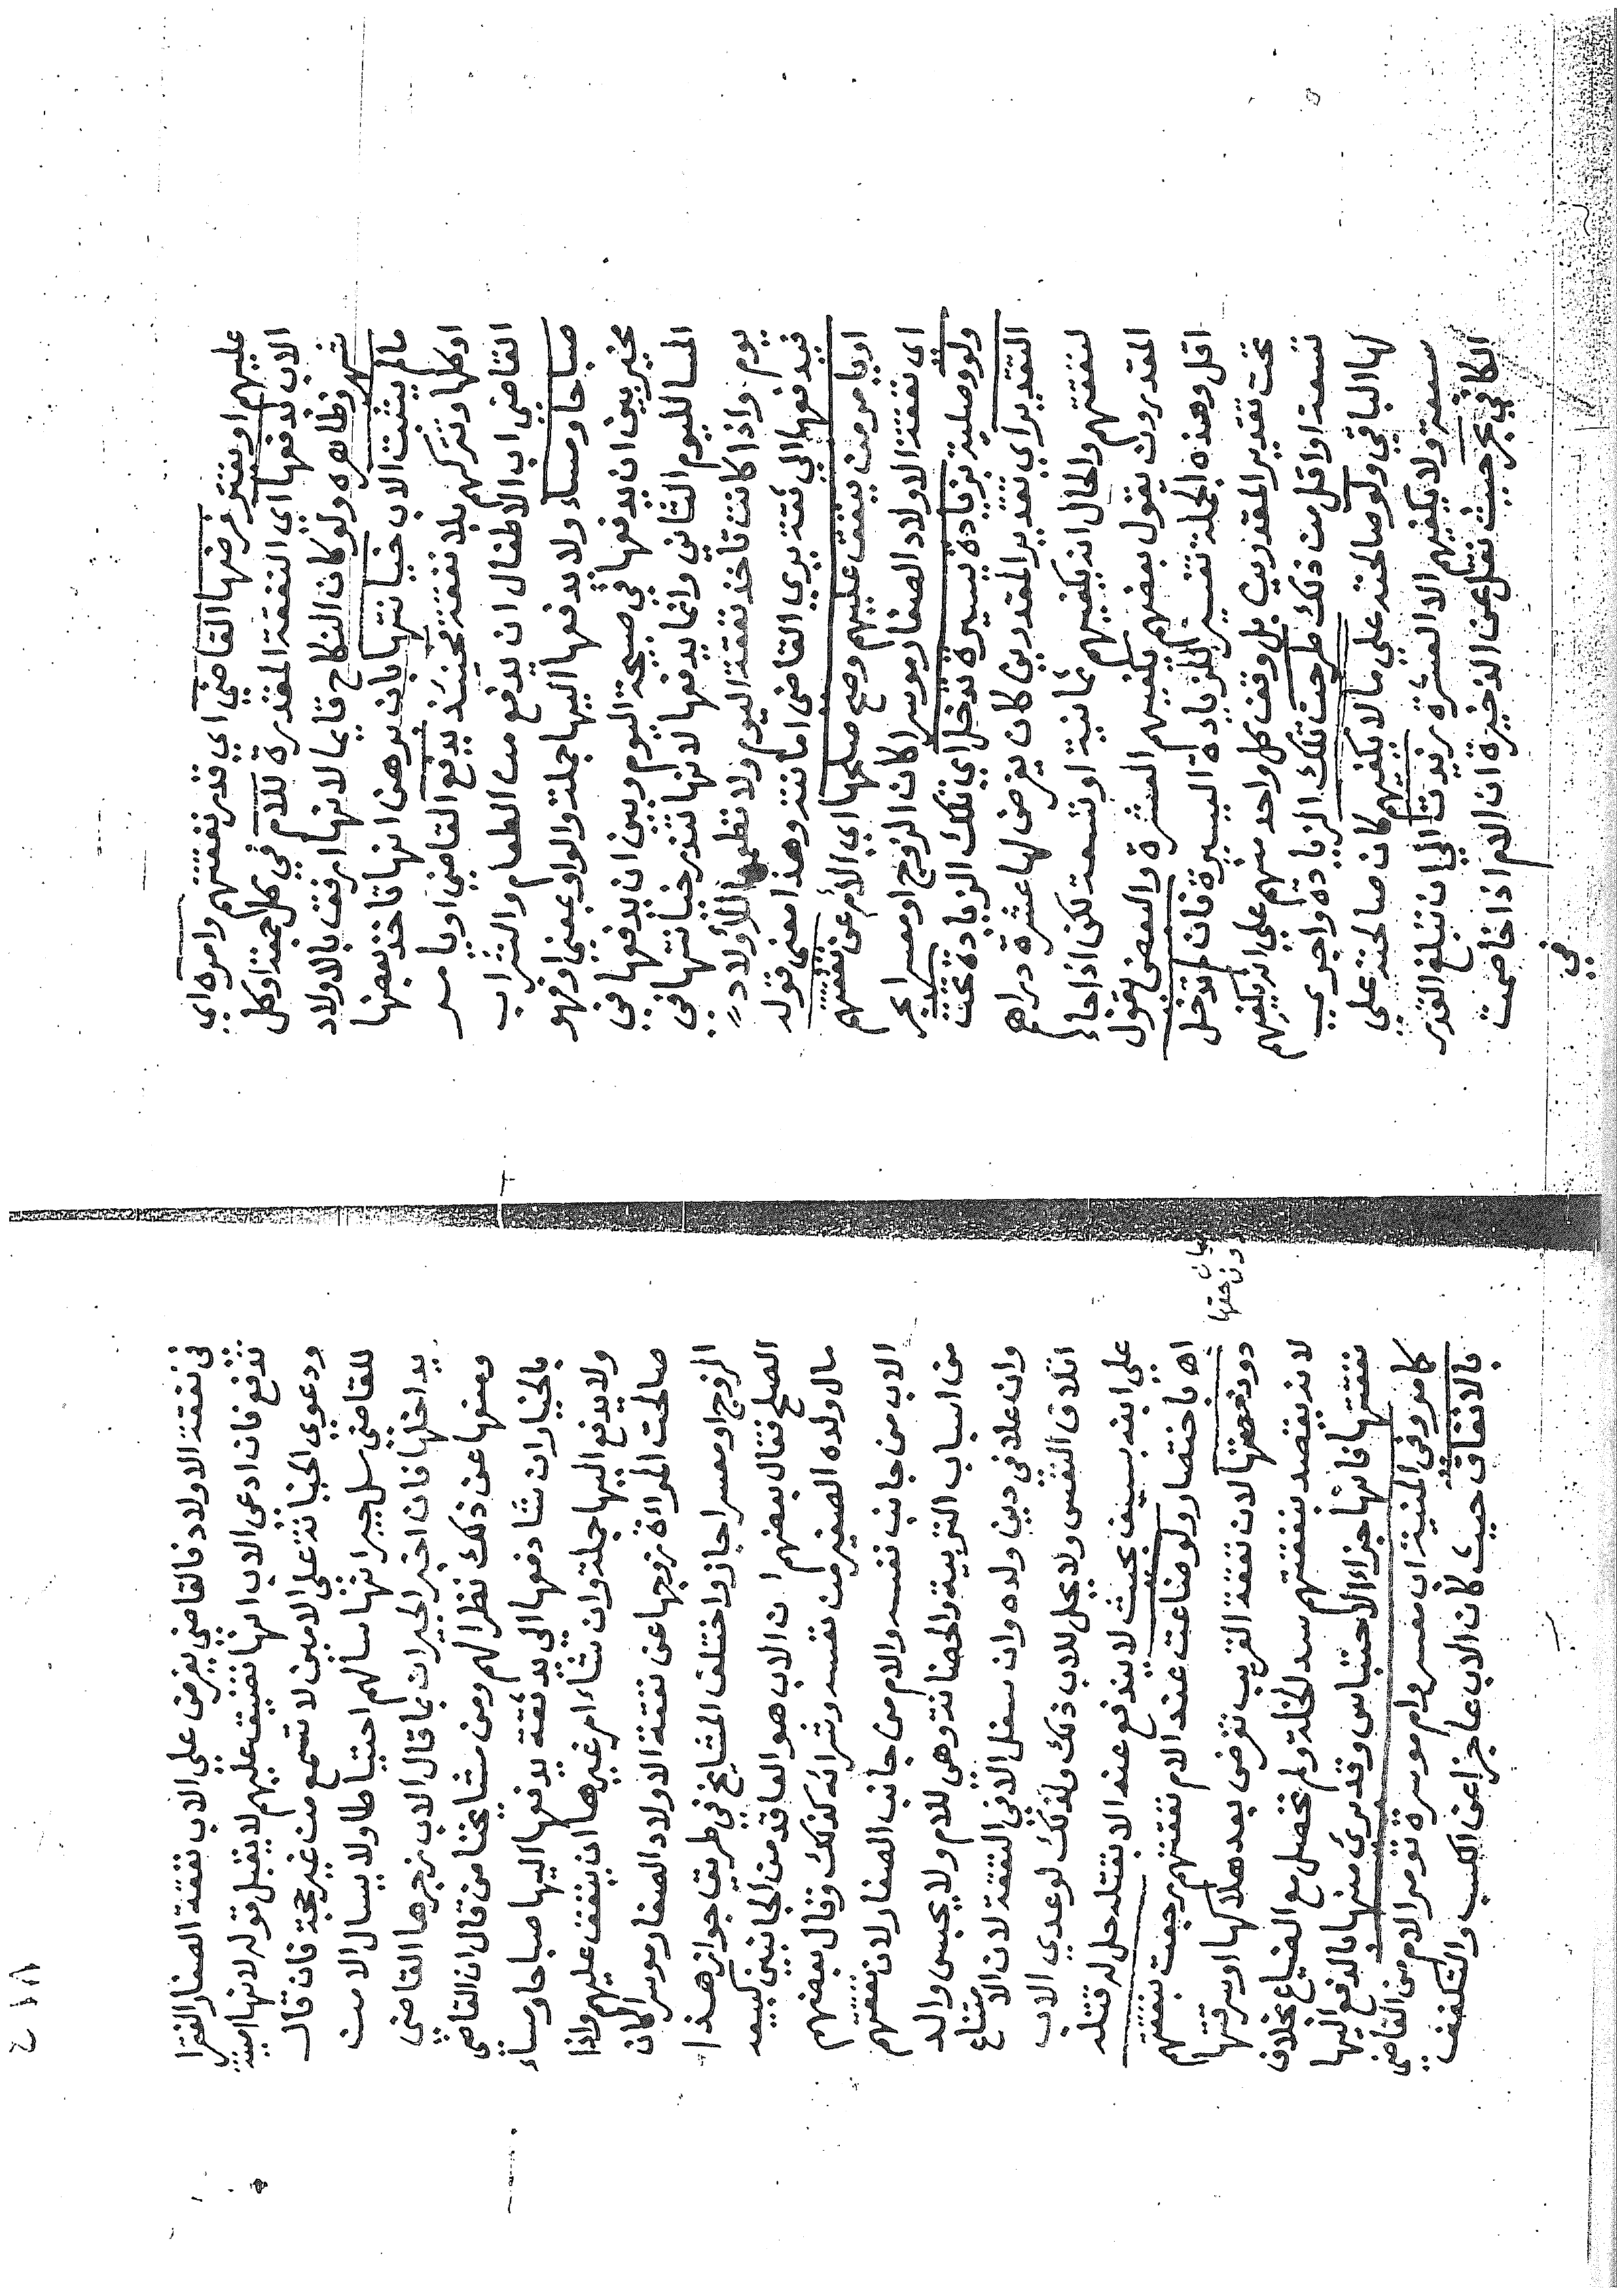 عليهم او يقتر فرضها القاضي اي قدر نفقتهم وامره اي
الاب بدفعها اي النفقة المقدرة للام في كل جمعة او كل
شهر وظاهره ولو كان النكاح قايما لانها ارفق بالاولاد
مالم يثبت الاب خيانتها بان برهن انها تاخذ بعضها
او كلها وتتركهم بلا نفقة فحينئذ يدفع القاضي او يامر
القاضي اب الاطفال ان يدفع من الطعام والشراب
صباحا ومساء ولا يدفعها اليها جملة والواو بمعني او فهو
مخير بين ان يدفعها في صبيحة اليوم وبين ان يدفعها في
المسا لليوم الثاني وانما يدفعها لانها تتذر خيانتها في
يوم واذا كانت تاخذ نفقة اليوم ولا تطعمها للأولاد
فيدفعها الي ثقة يري القاضي امانته وهذا معني قوله
او يامر من ينفق عليهم وصح صلحها اي الأم عن نفقتهم
اي نفقة الاولاد الصغار موسرا كان الزوج او معسرا
ولو وصلية بزيادة يسيرة تدخل اي تلك الزيادة تحت
التقدير اي تقدير المقدرين كان يفرض لها عشرة دراهم
لنفقتهم والحال انه يكفيهم ثمانية او تسعة لكن اذا جاء
المقدرون يقول بعضهم يكفيهم العشرة والبعض يقول
اقل وهذه الجملة تفسير للزيادة اليسيرة فان لم تدخل
تحت تقدير المقدرين بل وقف كل واحد منهم علي انه يكفيهم
تسعة او اقل من ذلك طرحت تلك الزيادة واجري
لها الباقي ولو صالحته علي مالا يكفيهم كان صالحته علي
سبعة ولا يكفيهم الا العشرة زيدت الي ان تبلغ القدر
الكافي بحر حيث نقل عن الذخيرة ان الام اذا خاصمت
في
في نفقة الاولاد فالقاضي يفرض علي الاب نفقة الصغار الفقرا
تدفع فان ادعى الاب انها تضيق عليهم لا يقبل قوله لانها امينة
ودعوي الخيانة على الامين لا تسمع من غير حجة فان قال
للقاضي سل جيرانها سالهم احتياطا ولا يسال الا من
يداخلها فان اخبر الجيران بما قال الاب زجرها القاضي
ومنعها عن ذلك نظرا لهم ومن مشايخنا من قال ان القاضي
بالخيار ان شا دفعها الي ثقة يدفعها اليها صباحا ومساء
ولا يدفع اليها جملة وان شاء امر غيرها ان ينفق عليهم واذا
صالحت المرأة زوجها عن نفقة الاولاد الصغار موسرا كان
الزوج او معسرا جاز واختلف المشايخ في طريق جوازه هذا
الصلح فقال بعضهم ان الاب هو العاقد من الجانبين كبيعه
مال ولده الصغير من نفسه وشرائه كذلك وقال بعضهم
الاب من جانب نفسه والام من جانب الصغار لان نفقتهم
من اسباب التربية والحضانة وهي للام ولا يحبس والد
وان علا في دين ولده وان سفل الا في النفقة لان الامتناع
اتلاف النفس ولا يحل للاب ذلك ولذلك لو عدي الاب
علي ابنه بسيف بحيث لا يندفع عنه الا بقتله حل له قتله
اه باختصار ولو ضاعت عند الام نفقتهم رجعت بنفقتهم
دون حصتها لان نفقة القريب تفرض بعد هلاكها او سرقتها
لانه يقصد بنفقتهم سد الخلة ولم تحصل مع الضياع بخلاف
نفقتها فانها جزاء الاحتباس وقد برئ منها بالدفع اليها
كما مر وفي المنية اب معسر وام موسرة تؤمر الام من القاضي
بالانفاق حيث كان الاب عاجزا عن الكسب والتكفف
دون حقها